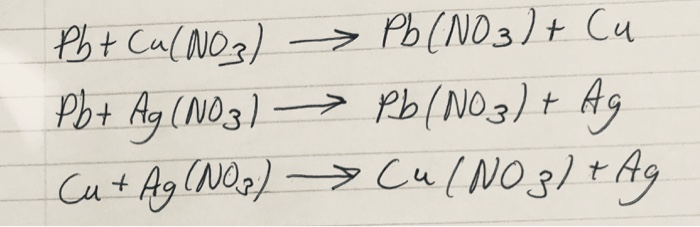 Pb + Cu(NO3) → Pb(NO3) + Cu
Pb + Ag(NO3) → Pb(NO3) + Ag
Cu + Ag(NO3) → Cu(NO3) + Ag